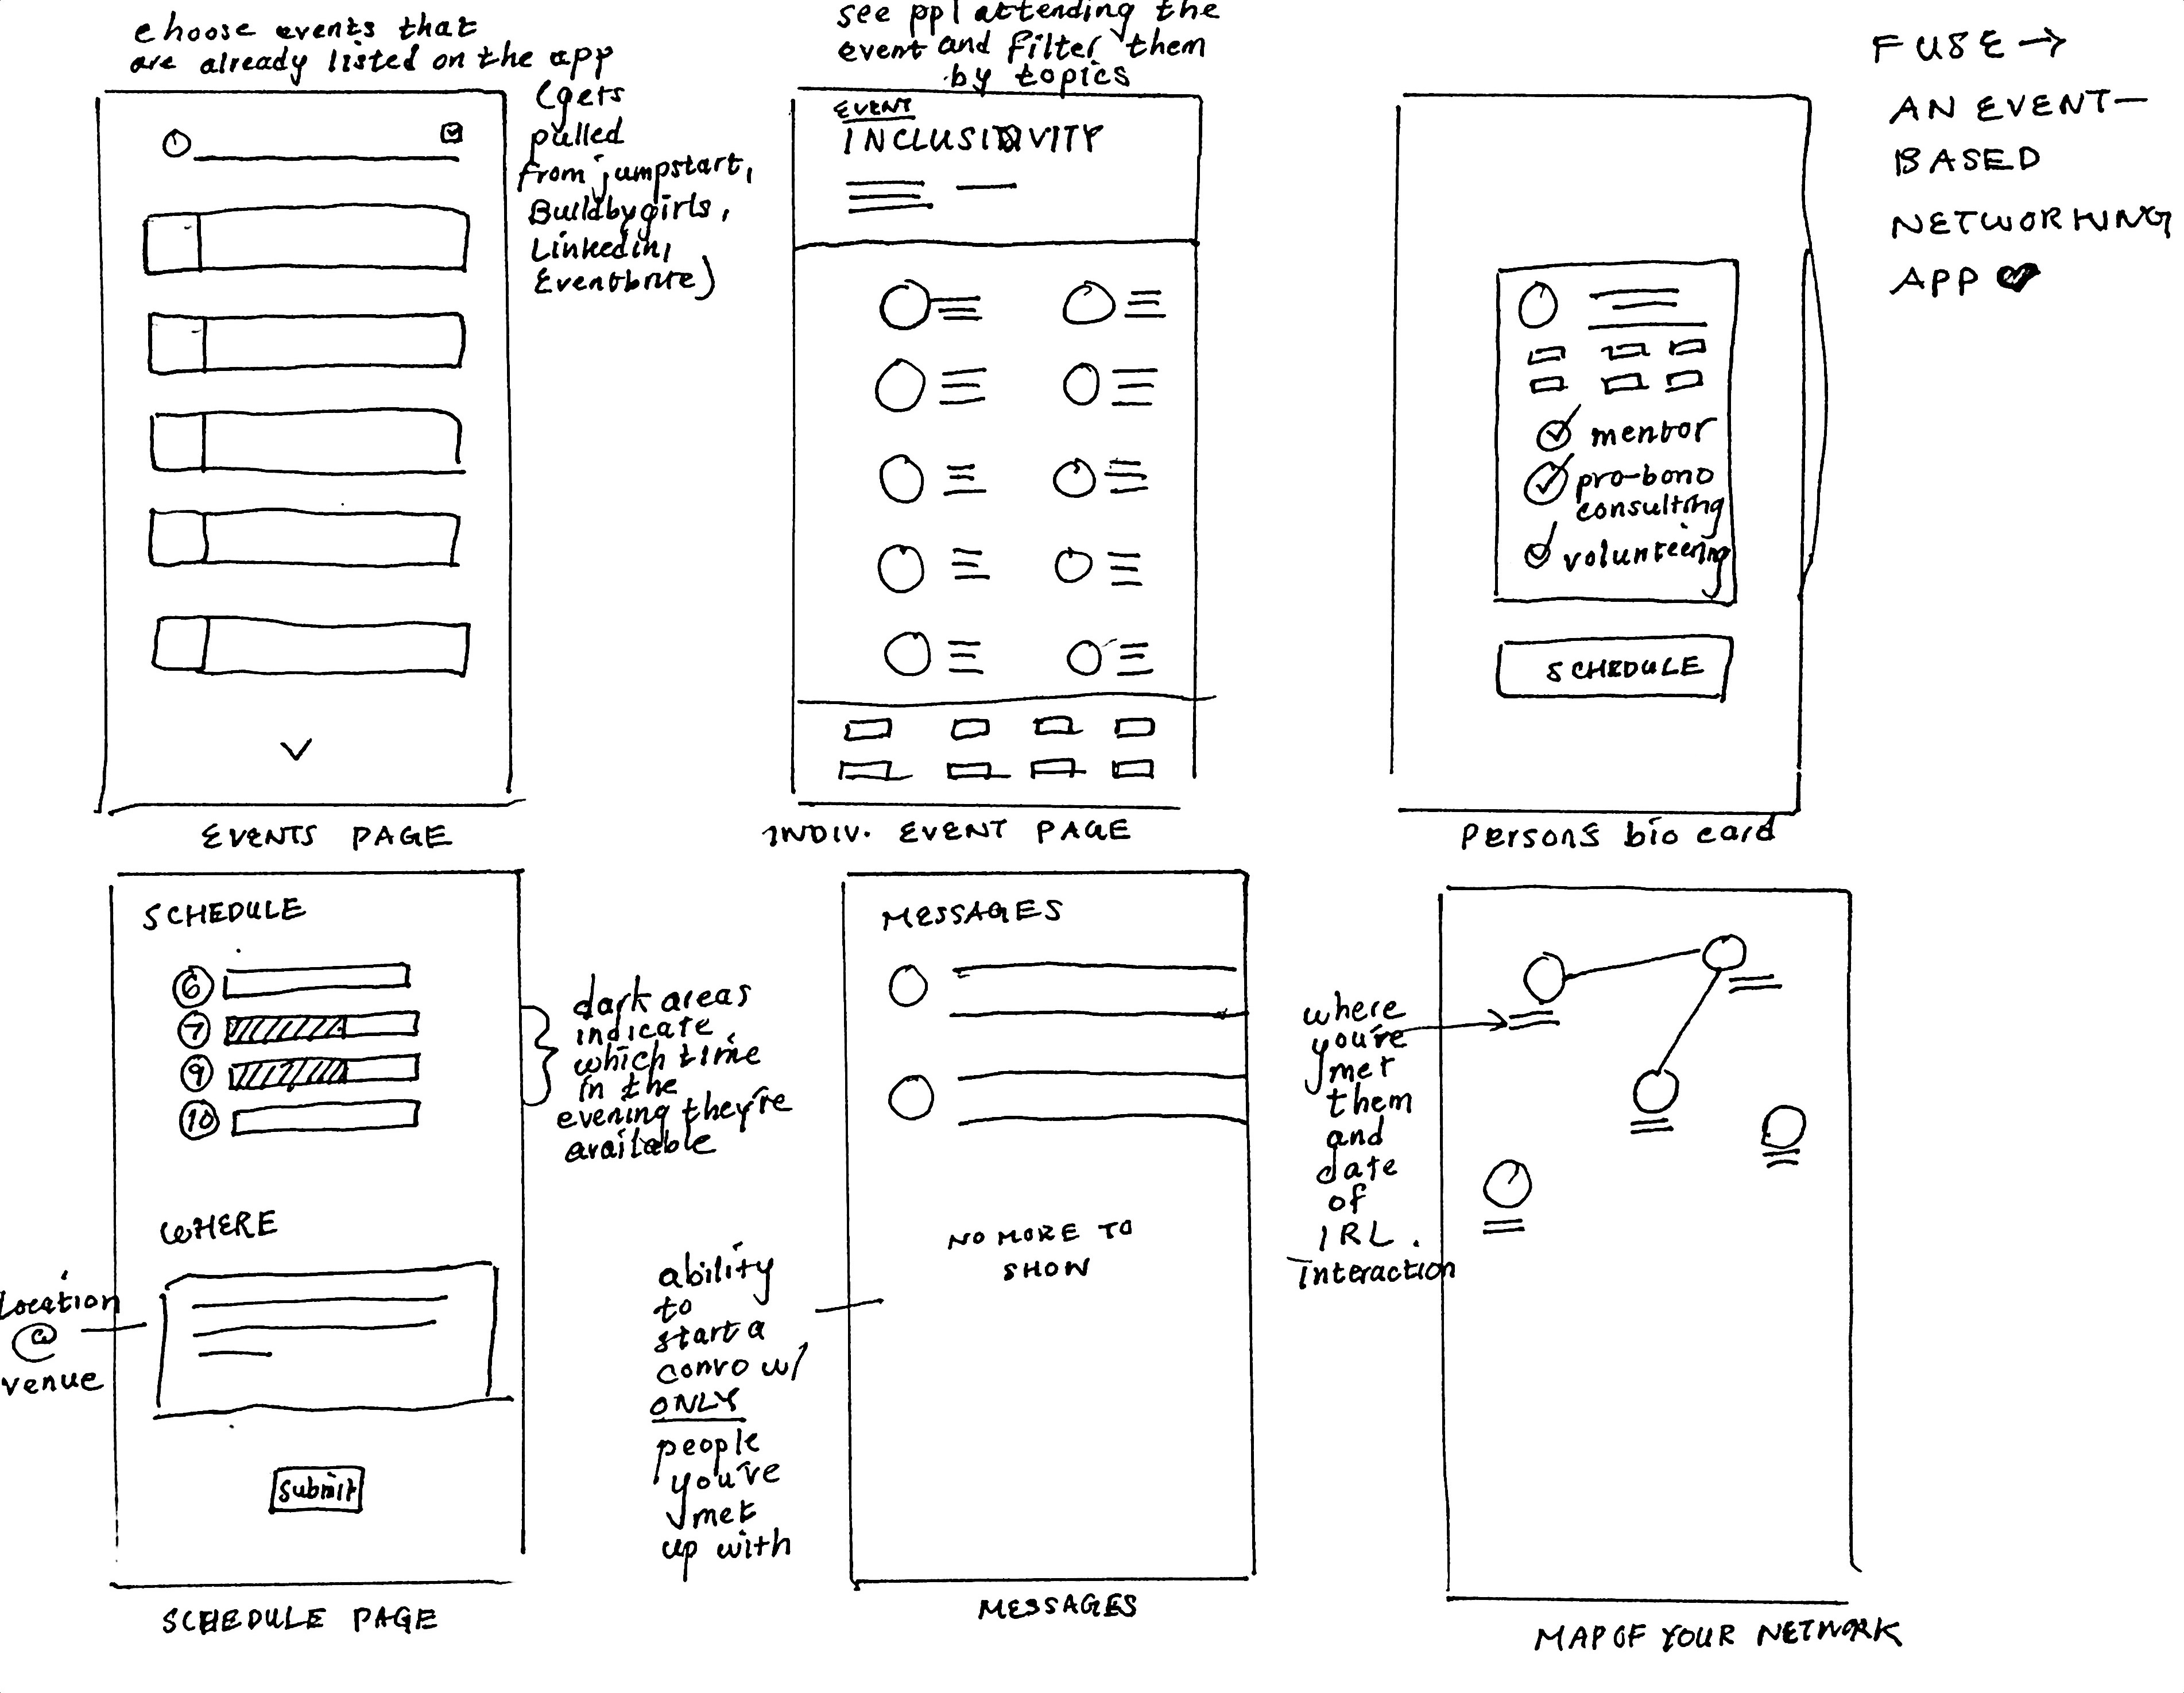 choose events that
are already listed on the app
(gets
pulled
from jumpstart,
Buildbygirls,
Linkedin,
Eventbrite)
EVENTS PAGE
see ppl attending the
event and filter them
by topics
EVENT
INCLUSIVITY
INDIV. EVENT PAGE
FUSE →
AN EVENT—
BASED
NETWORKING
APP ♥
mentor
pro-bono
consulting
volunteering
SCHEDULE
Persons bio card
SCHEDULE
6
7
9
10
dark areas
indicate
which time
in the
evening they're
available
WHERE
Location
@
venue
Submit
SCHEDULE PAGE
MESSAGES
NO MORE TO
SHOW
ability
to
start a
convo w/
ONLY
people
you've
met
up with
MESSAGES
where
you've
met
them
and
date
of
IRL.
interaction
MAP OF YOUR NETWORK